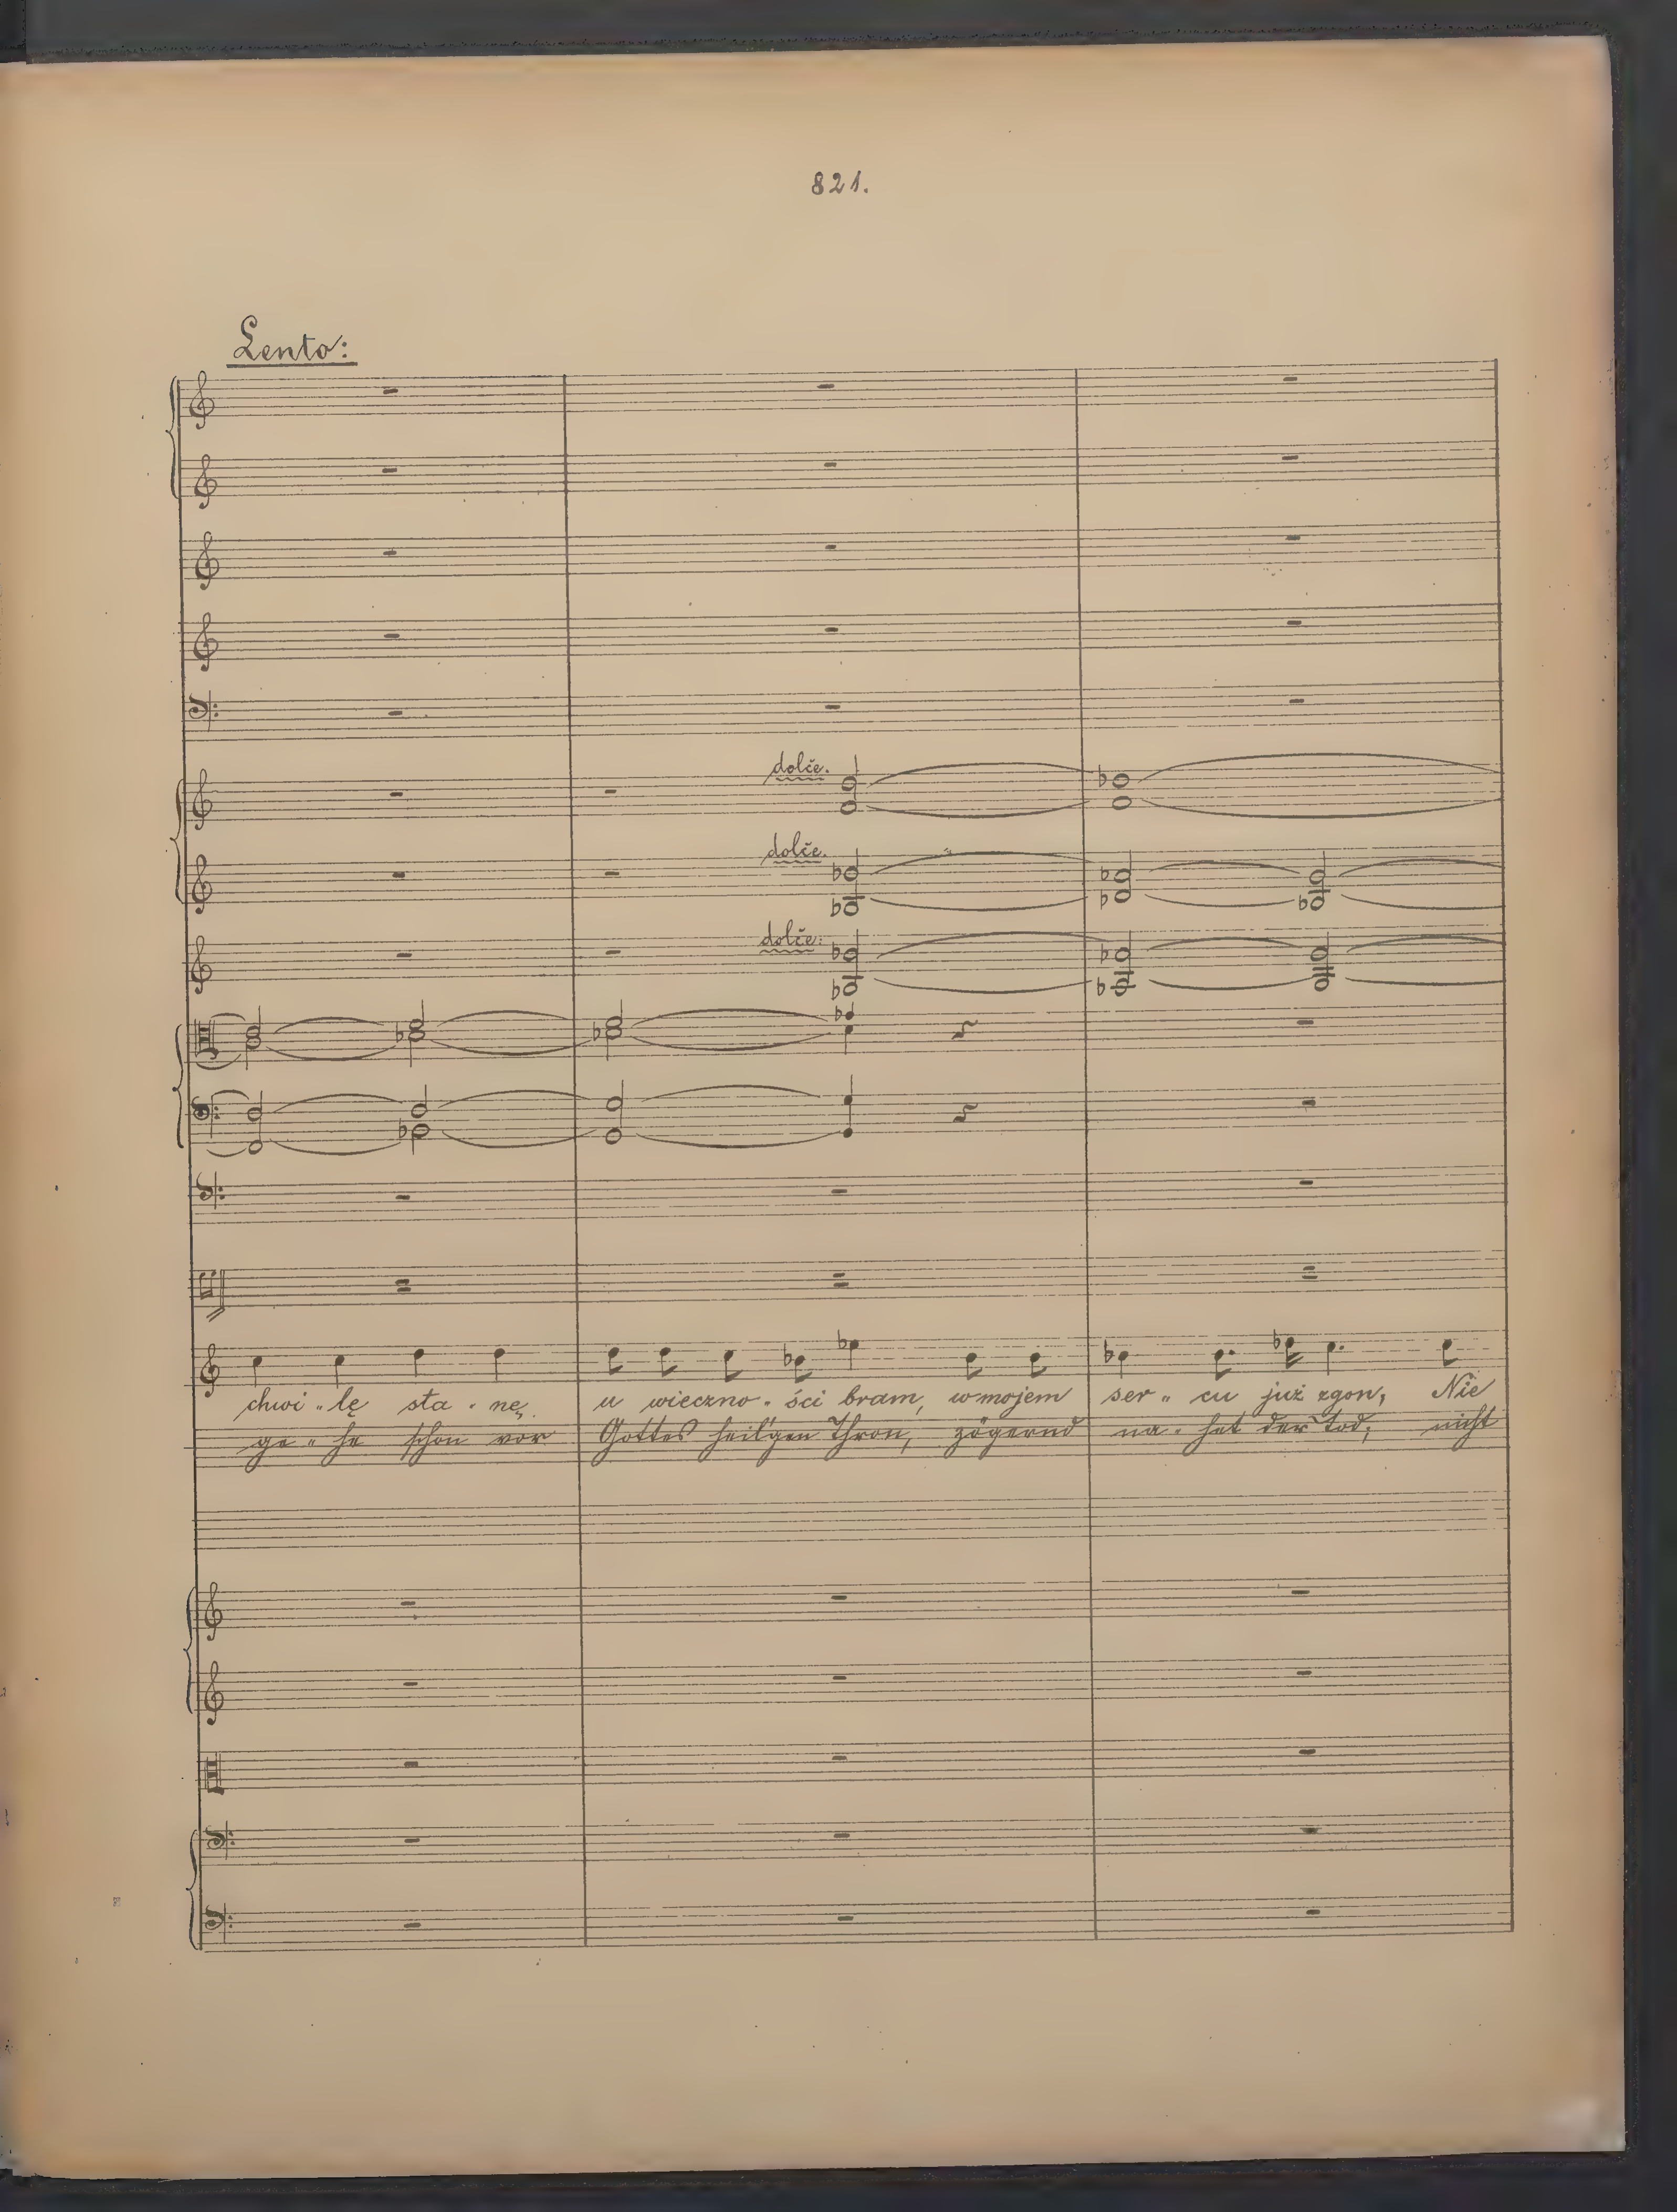 821.
Lento:
dolče.
dolče.
dolče:
chwi - lę sta - nę u wieczno - ści bram, w mojem ser - cu już zgon, Nie
ge - he schon vor Gottes heil'gen Thron, zögernd na - het der Tod, nicht